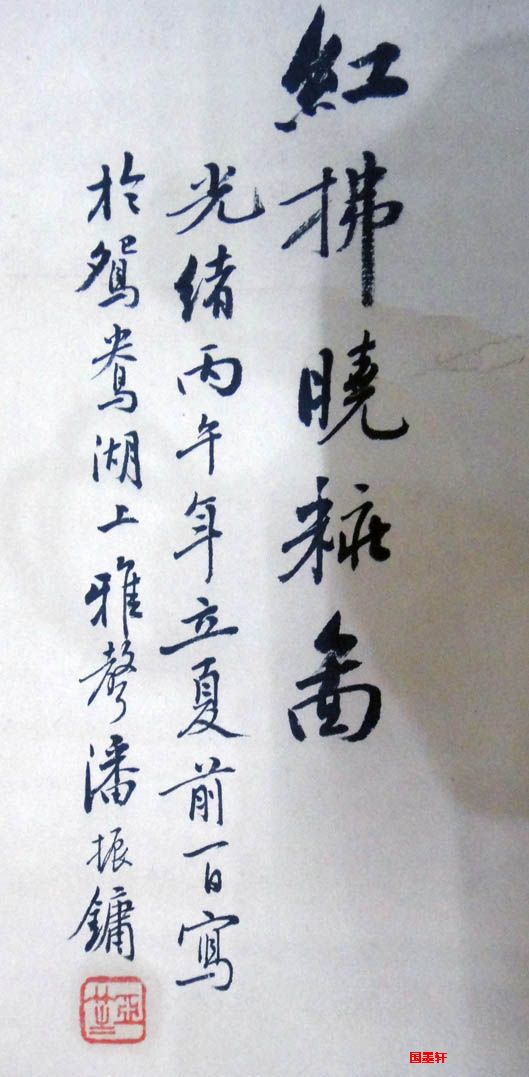 紅拂曉粧圖
光緒丙午年立夏前一日寫
於鴛鴦湖上雅聲潘振鏞
亞笙
国墨轩